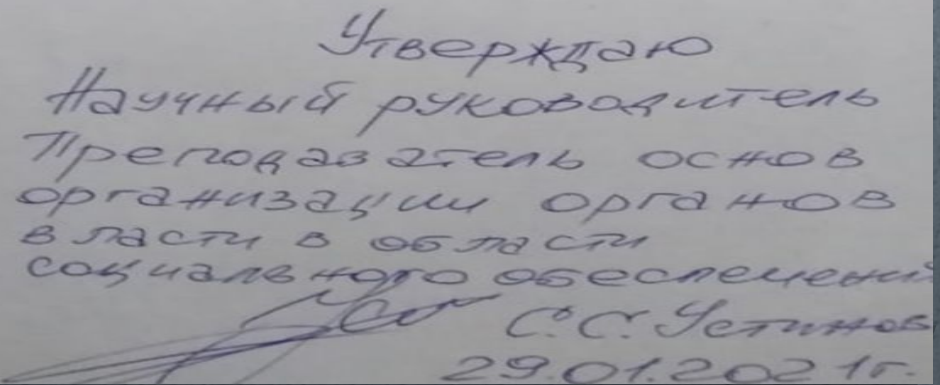 Утверждаю
Научный руководитель
Преподаватель основ
организации органов
власти в области
социального обеспечения
С.С. Устинов
29.01.2021г.